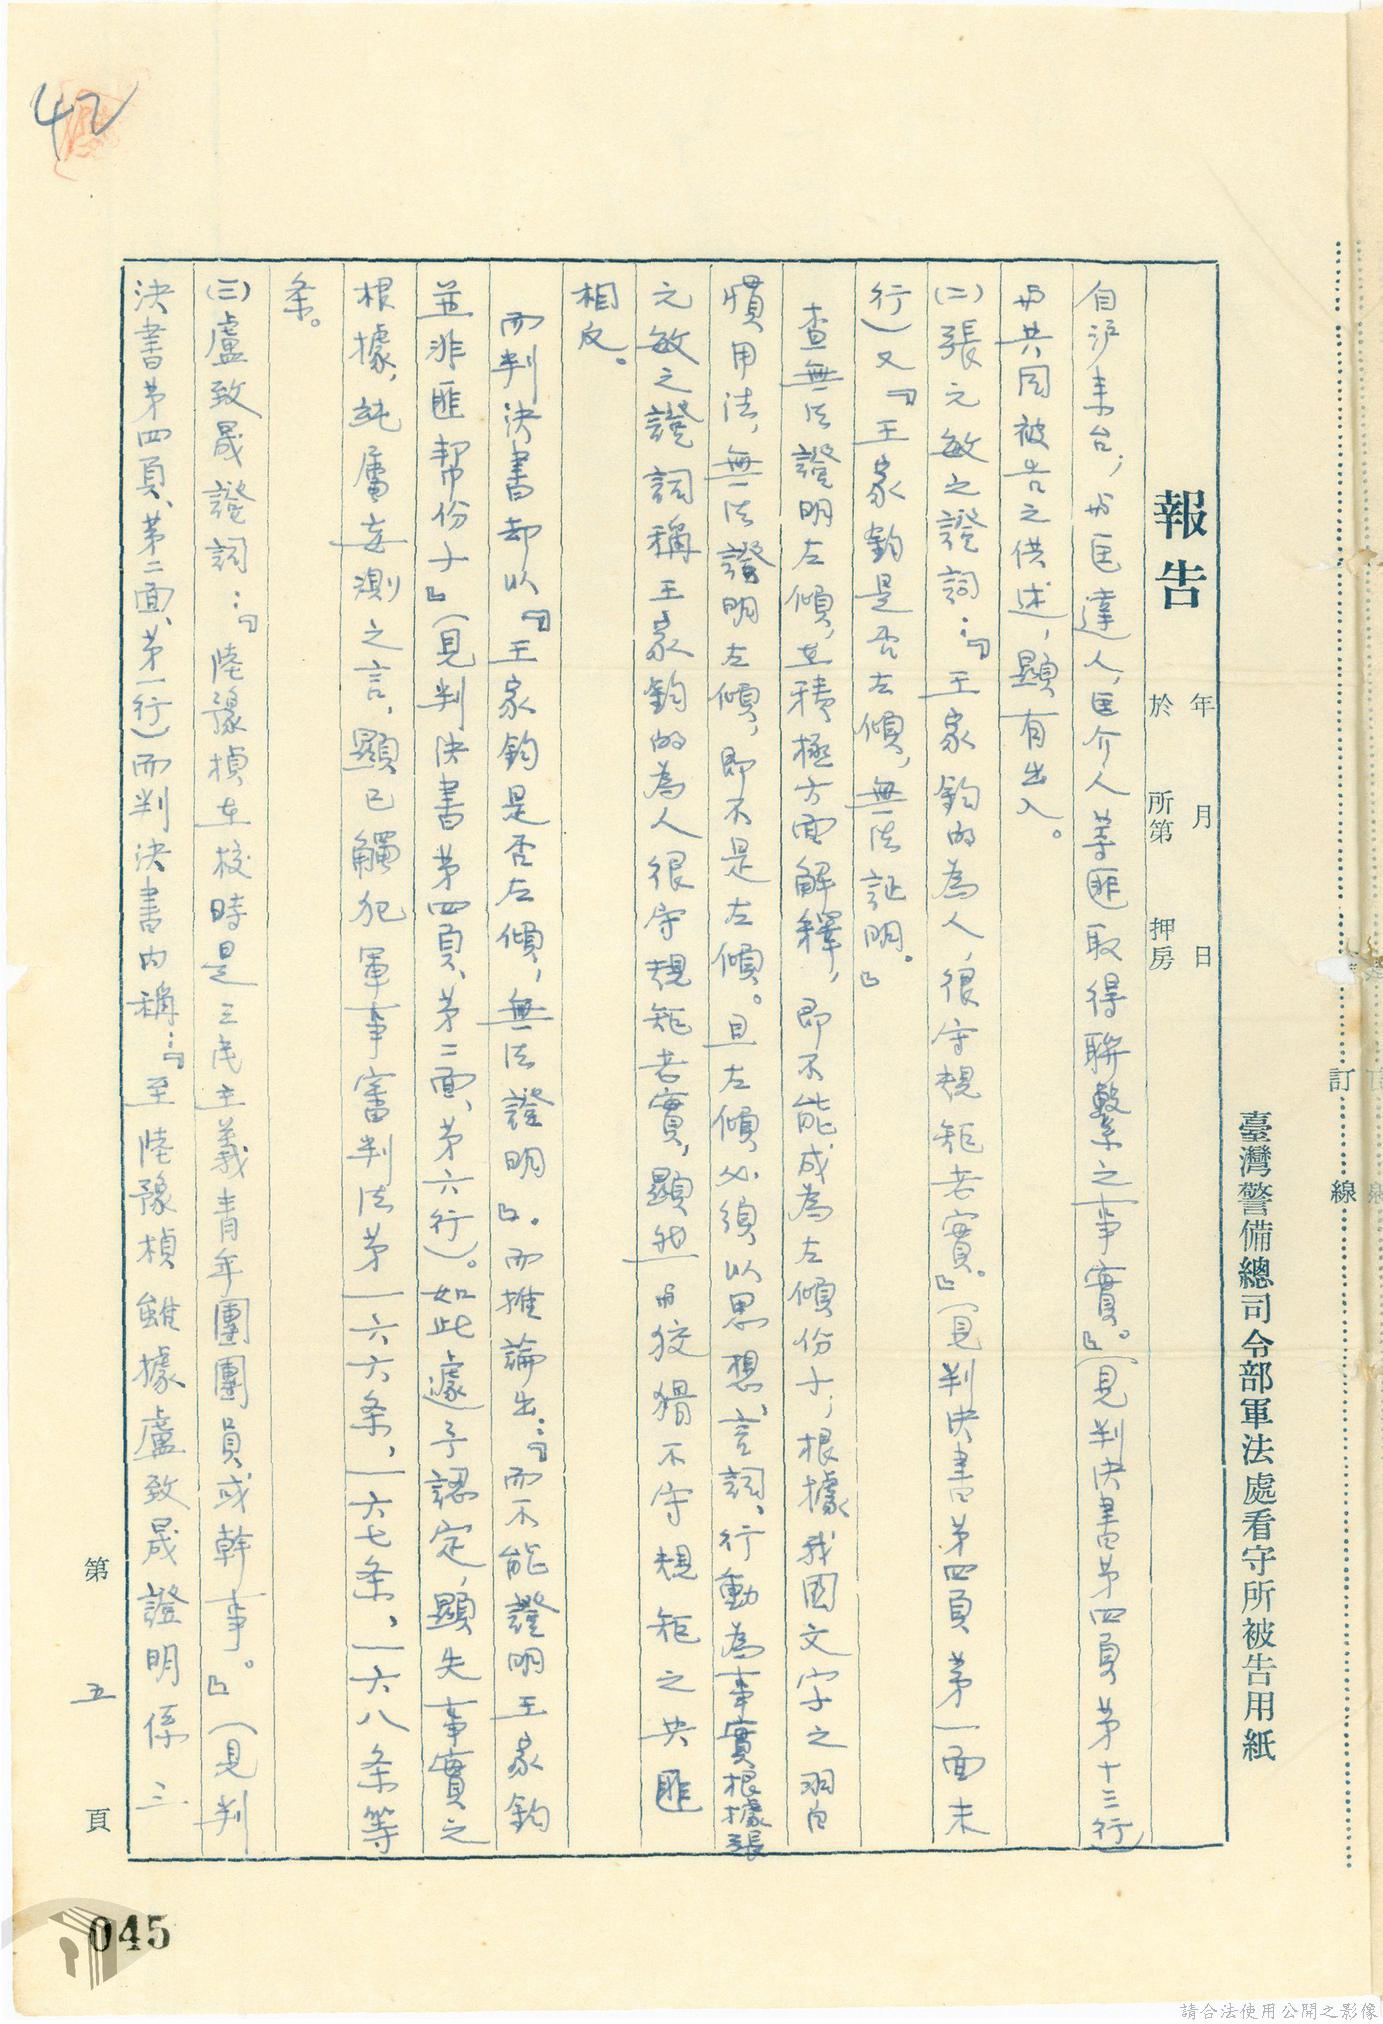 42
臺灣警備總司令部軍法處看守所被告用紙
報告
年 月 日
於 所第 押房
自沪来台，与匡達人，匡介人等匪取得聯繫之事實。』（見判決書第四頁第十三行）
与共同被告之供述，顯有出入。
(二)張元敏之證詞：『王家鈞的為人，很守規矩老實。』（見判決書第四頁第一面末
行）又『王家鈞是否左傾，無法証明。』
查無法證明左傾，在積極方面解釋，即不能成為左傾份子；根據我國文字之習
慣用法，無法證明左傾，即不是左傾。且左傾必須以思想、言詞、行動為事實根據張
元敏之證詞稱王家鈞的為人很守規矩老實，顯然與狡猾不守規矩之共匪
相反。
而判決書却以『王家鈞是否左傾，無法證明』。而推論出：『而不能證明王家鈞
並非匪幫份子』（見判決書第四頁、第二面、第六行）。如此遽予認定，顯失事實之
根據，純屬妄測之言，顯已觸犯軍事審判法第一六六条，一六七条、一六八条等
条。
(三)盧致晟證詞：『陸豫楨在校時是三民主義青年團團員或幹事。』（見判
決書第四頁、第二面、第一行）而判決書内稱：『至陸豫楨雖據盧致晟證明係三
第 五 頁
訂 線
045
請合法使用公開之影像